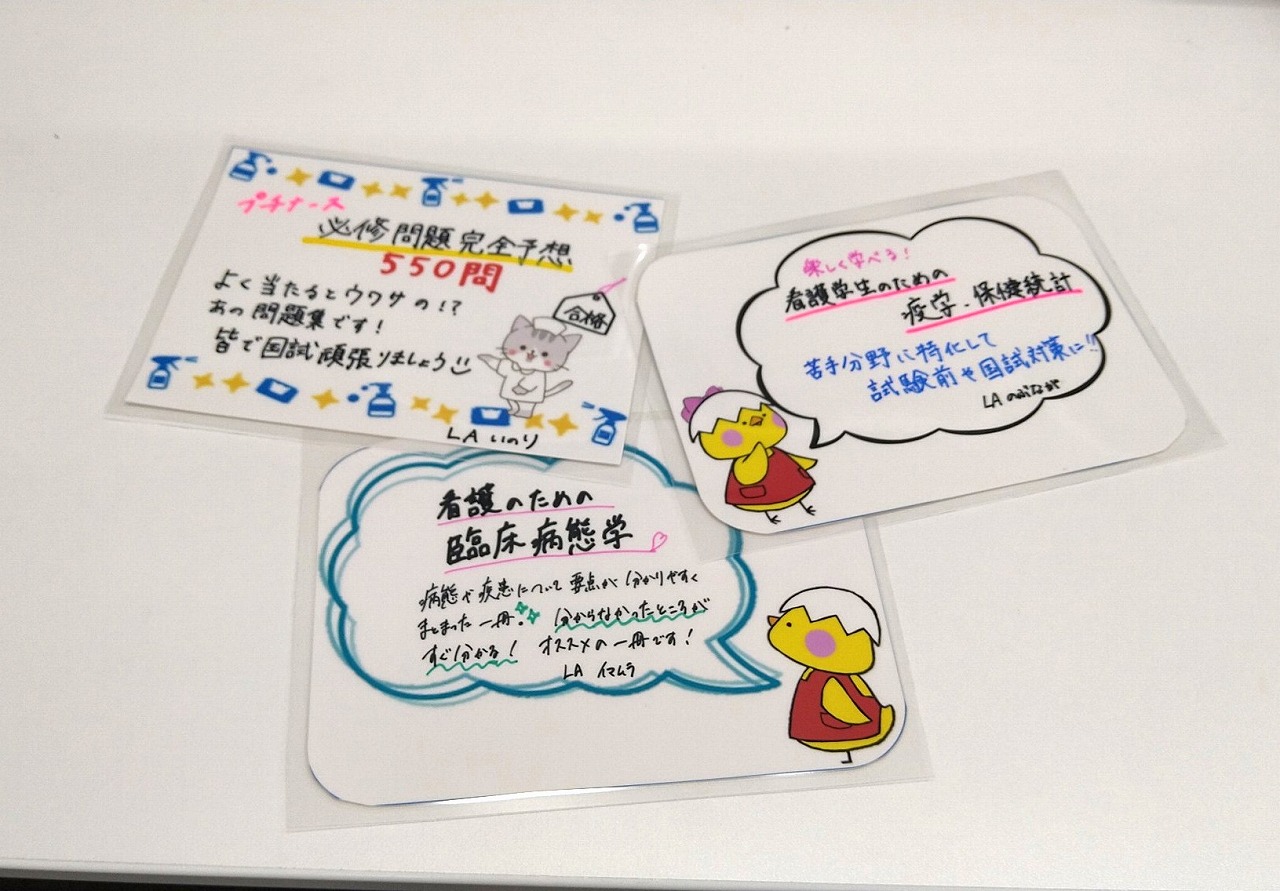 プチナース
必修問題完全予想
550問
よく当たるとウワサの!?
あの問題集です!
皆で国試頑張りましょう
合格
LA いのり
楽しく学べる!
看護学生のための
疫学・保健統計
苦手分野に特化して
試験前や国試対策に!!
LA のぶなが
看護のための
臨床病態学
病態や疾患について要点が分かりやすく
まとまった一冊 分からなかったところが
すぐ分かる! オススメの一冊です!
LA イマムラ